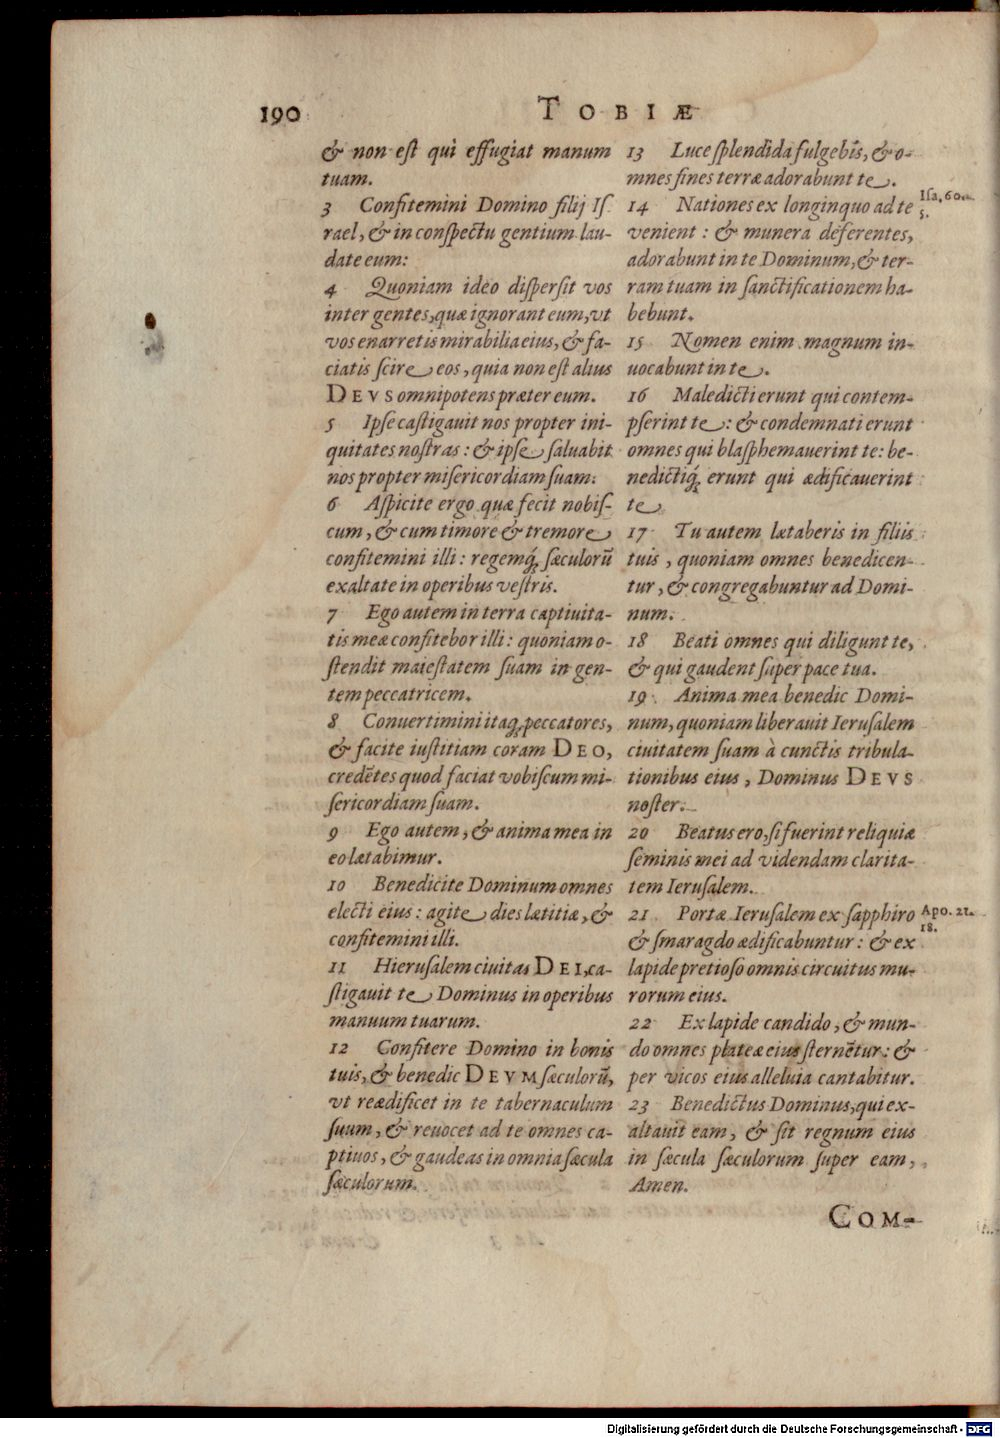 190
TOBIÆ
& non eſt qui effugiat manum
tuam.
3 Confitemini Domino filij Iſ-
rael, & in conſpectu gentium lau-
date eum:
4 Quoniam ideo diſperſit vos
inter gentes, quæ ignorant eum, vt
vos enarretis mirabilia eius, & fa-
ciatis ſcire eos, quia non eſt alius
DEVS omnipotens præter eum.
5 Ipſe caſtigauit nos propter ini-
quitates noſtras: & ipſe ſaluabit
nos propter miſericordiam ſuam.
6 Aſpicite ergo quæ fecit nobiſ-
cum, & cum timore & tremore
confitemini illi: regemq́; ſæculorū
exaltate in operibus veſtris.
7 Ego autem in terra captiuita-
tis meæ confitebor illi: quoniam o-
ſtendit maieſtatem ſuam in gen-
tem peccatricem.
8 Conuertimini itaq; peccatores,
& facite iuſtitiam coram DEO,
credētes quod faciat vobiſcum mi-
ſericordiam ſuam.
9 Ego autem, & anima mea in
eo lætabimur.
10 Benedicite Dominum omnes
electi eius: agite dies lætitiæ, &
confitemini illi.
11 Hieruſalem ciuitas DEI, ca-
ſtigauit te Dominus in operibus
manuum tuarum.
12 Confitere Domino in bonis
tuis, & benedic DEVM ſæculorū,
vt reædificet in te tabernaculum
ſuum, & reuocet ad te omnes ca-
ptiuos, & gaudeas in omnia ſæcula
ſæculorum.
13 Luce ſplendida fulgebis, & o-
mnes fines terræ adorabunt te.
14 Nationes ex longinquo ad te
venient: & munera deferentes,
adorabunt in te Dominum, & ter-
ram tuam in ſanctificationem ha-
bebunt.
15 Nomen enim magnum in-
uocabunt in te.
16 Maledicti erunt qui contem-
pſerint te: & condemnati erunt
omnes qui blaſphemauerint te: be-
nedictiq́; erunt qui ædificauerint
te
17 Tu autem lætaberis in filiis
tuis, quoniam omnes benedicen-
tur, & congregabuntur ad Domi-
num.
18 Beati omnes qui diligunt te,
& qui gaudent ſuper pace tua.
19 Anima mea benedic Domi-
num, quoniam liberauit Ieruſalem
ciuitatem ſuam à cunctis tribula-
tionibus eius, Dominus DEVS
noſter.
20 Beatus ero, ſi fuerint reliquiæ
ſeminis mei ad videndam clarita-
tem Ieruſalem.
21 Portæ Ieruſalem ex ſapphiro
& ſmaragdo ædificabuntur: & ex
lapide pretioſo omnis circuitus mu-
rorum eius.
22 Ex lapide candido, & mun-
do omnes plateæ eius ſternētur: &
per vicos eius alleluia cantabitur.
23 Benedictus Dominus, qui ex-
altauit eam, & ſit regnum eius
in ſæcula ſæculorum ſuper eam,
Amen.
Iſa. 60.
5.
Apo. 21.
18.
COM-
Digitalisierung gefördert durch die Deutsche Forschungsgemeinschaft - DFG